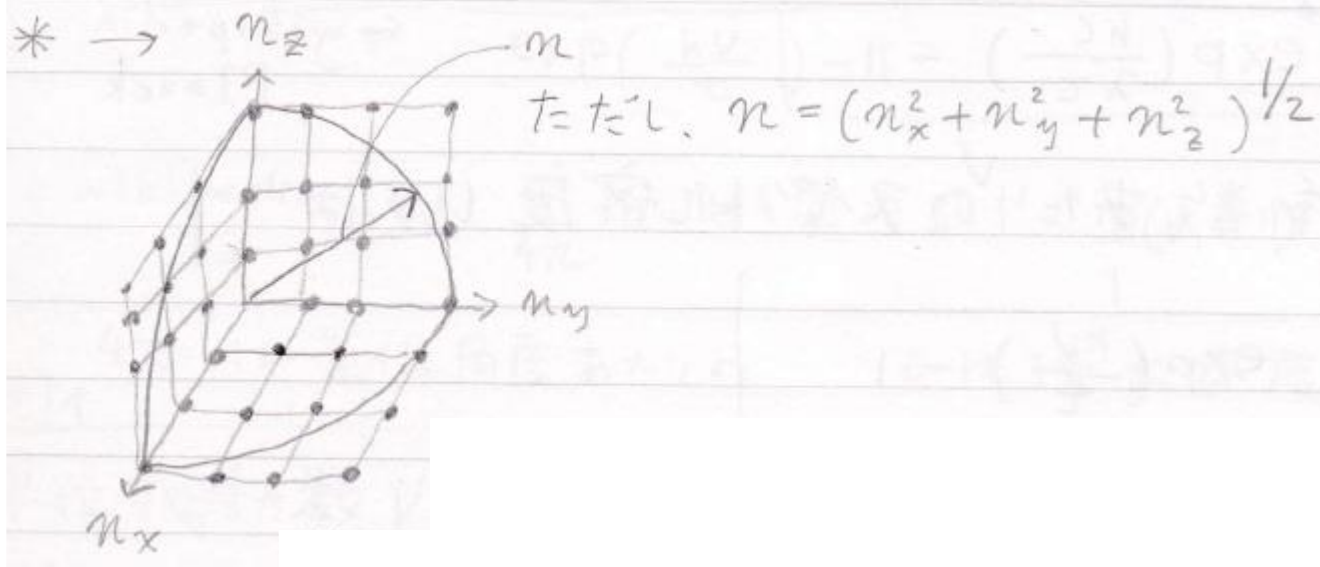 * → n_z
n
ただし、n = (n_x^2 + n_y^2 + n_z^2)^{1/2}
n_y
n_x